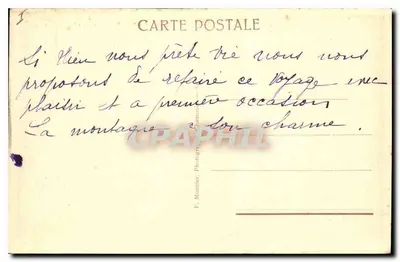 5
CARTE POSTALE
Si Dieu nous prête vie nous nous
proposons de refaire ce voyage avec
plaisir et a première occasion
La montagne a son charme.
CPAPHIL